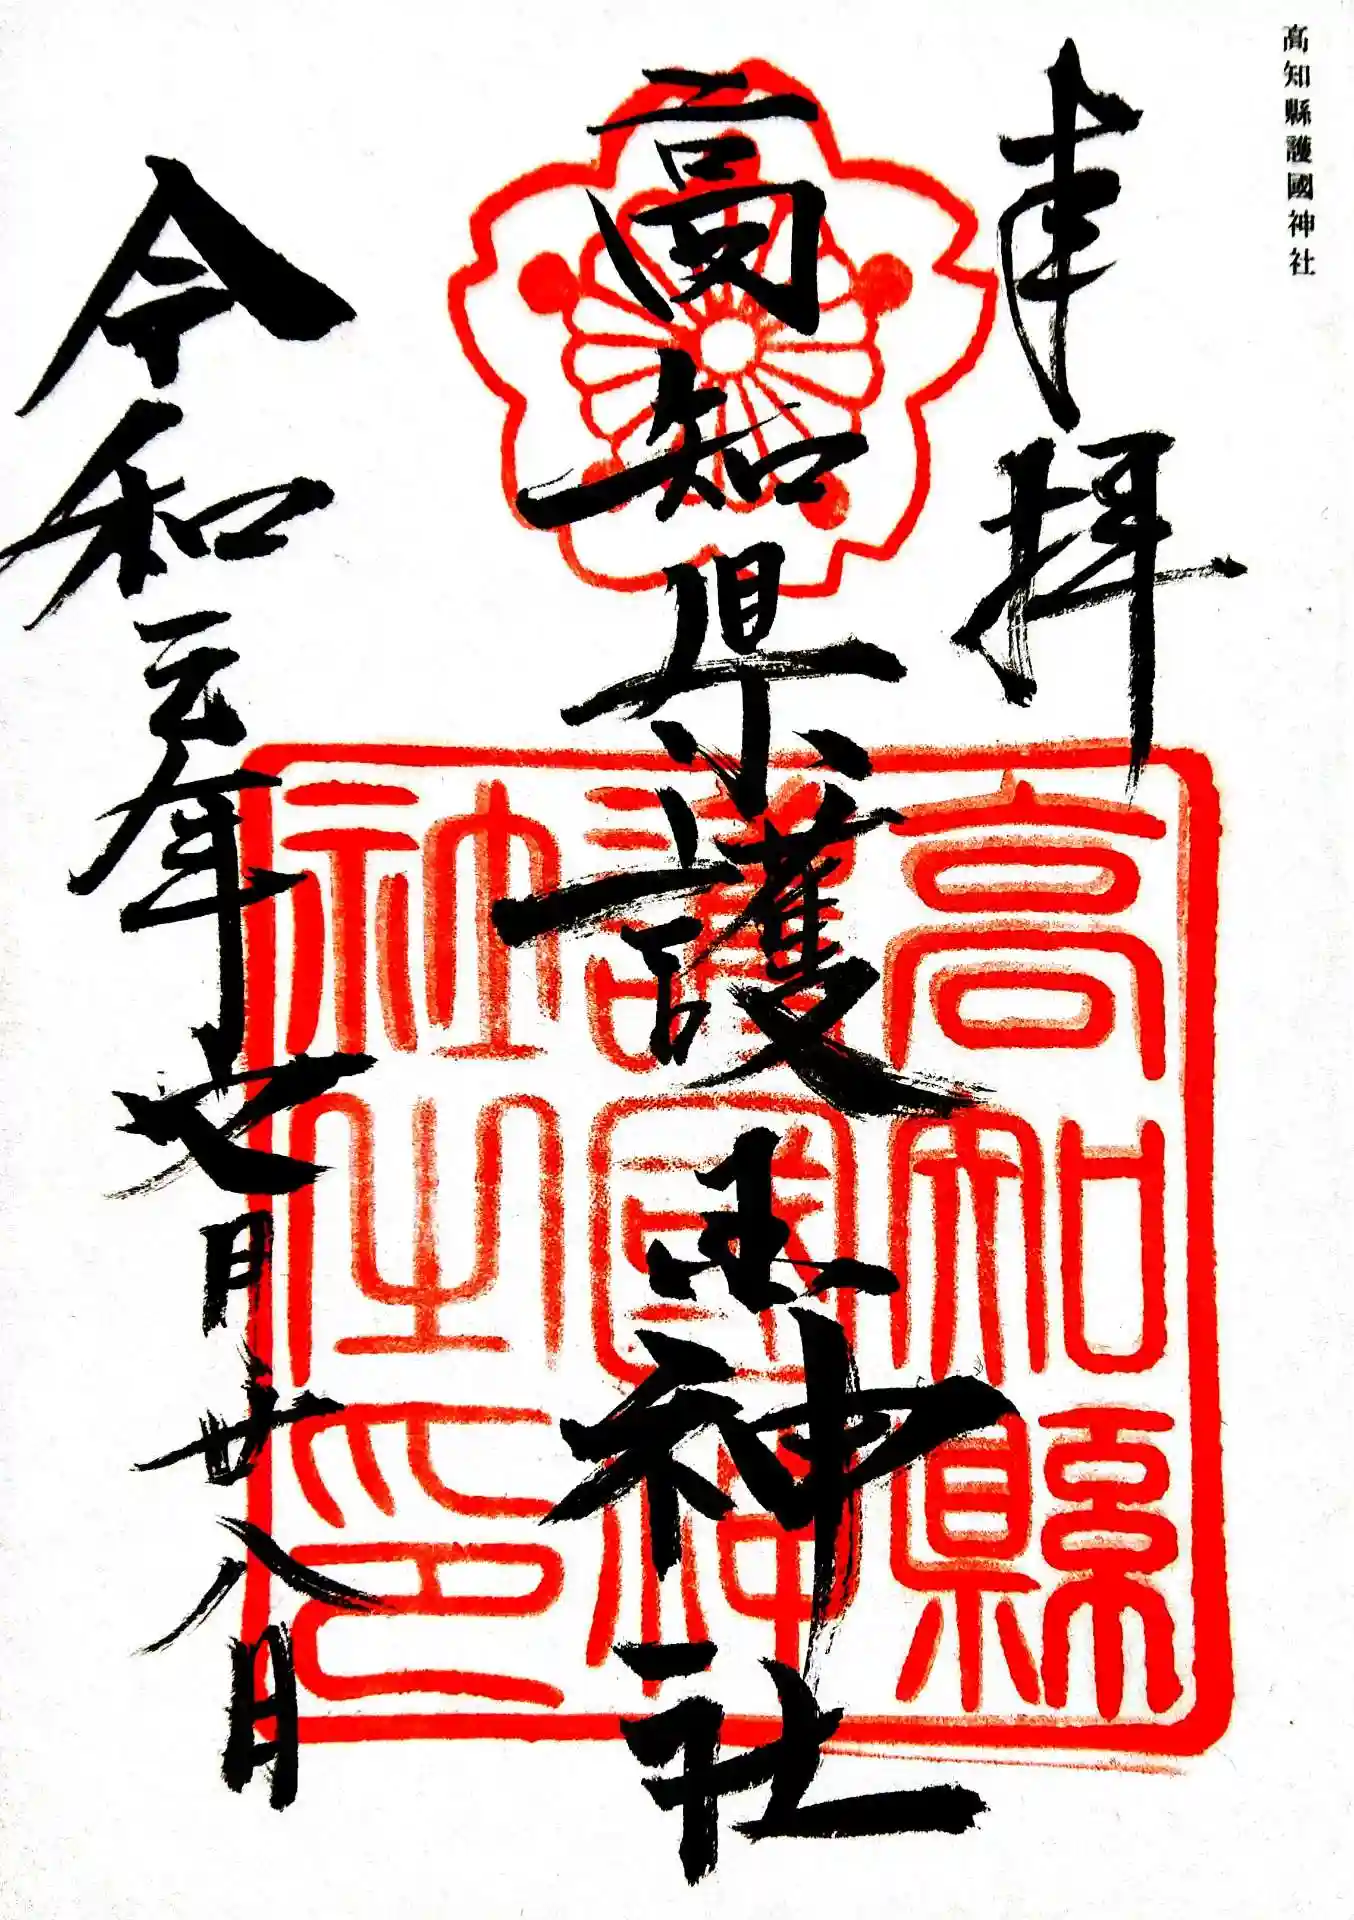 高知縣護國神社
奉拝
高知県護国神社
令和元年七月廿八日
高知縣
護國神
社之印